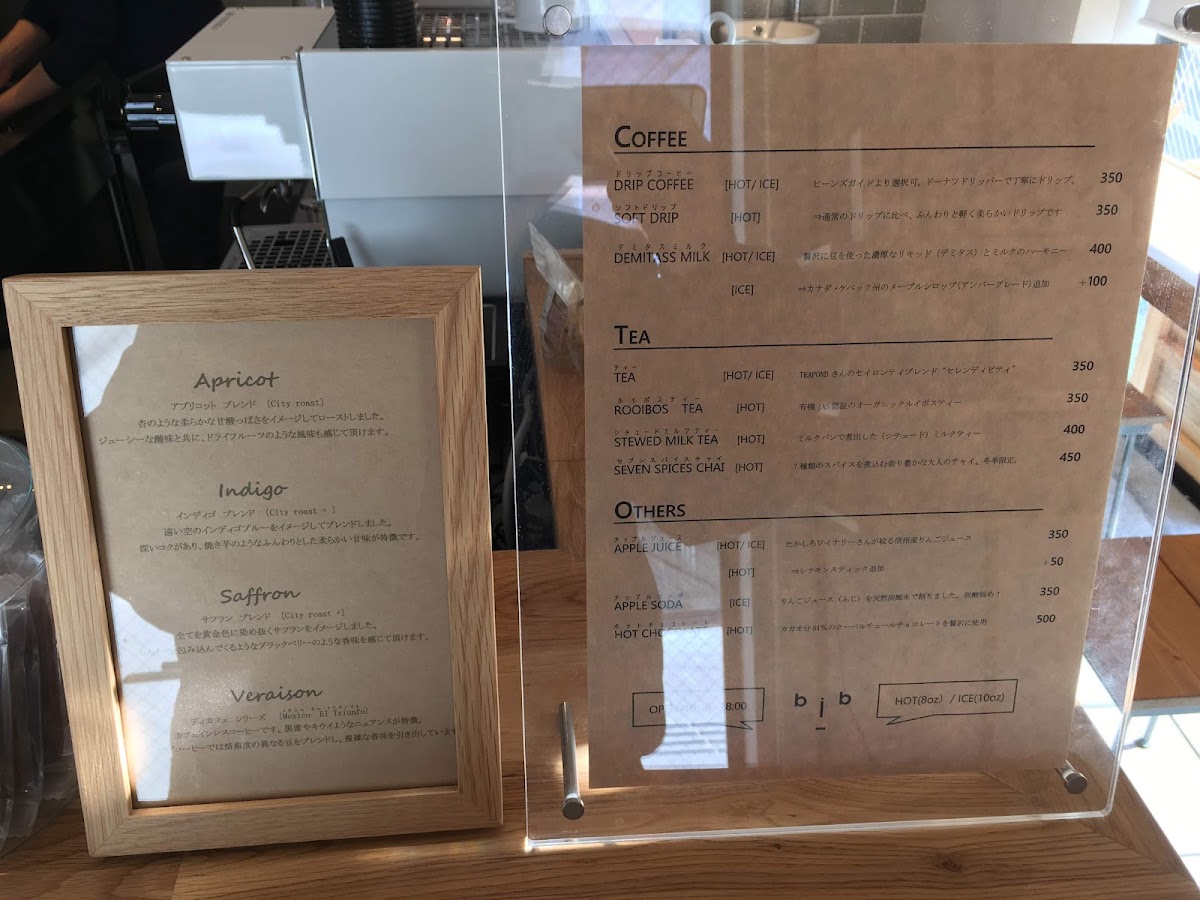 Apricot
アプリコット ブレンド [City roast]
杏のような柔らかな甘酸っぱさをイメージしてローストしました。
ジューシーな酸味と共に、ドライフルーツのような風味も感じて頂けます。
Indigo
インディゴ ブレンド [City roast + ]
遠い空のインディゴブルーをイメージしてブレンドしました。
深いコクがあり、焼き芋のようなふんわりとした柔らかい甘味が特徴です。
Saffron
サフラン ブレンド [City roast +]
全てを黄金色に染め抜くサフランをイメージしました。
包み込んでくるようなブラックベリーのような香味を感じて頂けます。
Veraison
ディカフェ シリーズ [Mexico El Triunfo]
カフェインレスコーヒーです。黒蜜やキウイようなニュアンスが特徴。
コーヒーでは焙煎度の異なる豆をブレンドし、複雑な香味を引き出しています
COFFEE
ドリップコーヒー
DRIP COFFEE [HOT/ ICE] ビーンズガイドより選択可。ドーナツドリッパーで丁寧にドリップ。 350
ソフトドリップ
SOFT DRIP [HOT] ⇒通常のドリップに比べ、ふんわりと軽く柔らかいドリップです 350
デミタスミルク
DEMITASS MILK [HOT/ ICE] 贅沢に豆を使った濃厚なリキッド(デミタス)とミルクのハーモニー 400
[ICE] ⇒カナダ・ケベック州のメープルシロップ(アンバーグレード)追加 +100
TEA
ティー
TEA [HOT/ ICE] TEAPOND さんのセイロンティブレンド "セレンディピティ" 350
ルイボスティー
ROOIBOS TEA [HOT] 有機 JAS 認証のオーガニックルイボスティー 350
シチュードミルクティー
STEWED MILK TEA [HOT] ミルクパンで煮出した(シチュード)ミルクティー 400
セブンスパイスチャイ
SEVEN SPICES CHAI [HOT] 7種類のスパイスを煮込む香り豊かな大人のチャイ。冬季限定。 450
OTHERS
アップルジュース
APPLE JUICE [HOT/ ICE] たかしろワイナリーさんが絞る信州産りんごジュース 350
[HOT] ⇒シナモンスティック追加 +50
アップルソーダ
APPLE SODA [ICE] りんごジュース(ふじ)を天然炭酸水で割りました。炭酸強め! 350
ホットチョコレート
HOT [HOT] カカオ分 61%のクーベルチュールチョコレートを贅沢に使用 500
8:00
bjb
HOT(8oz) / ICE(10oz)